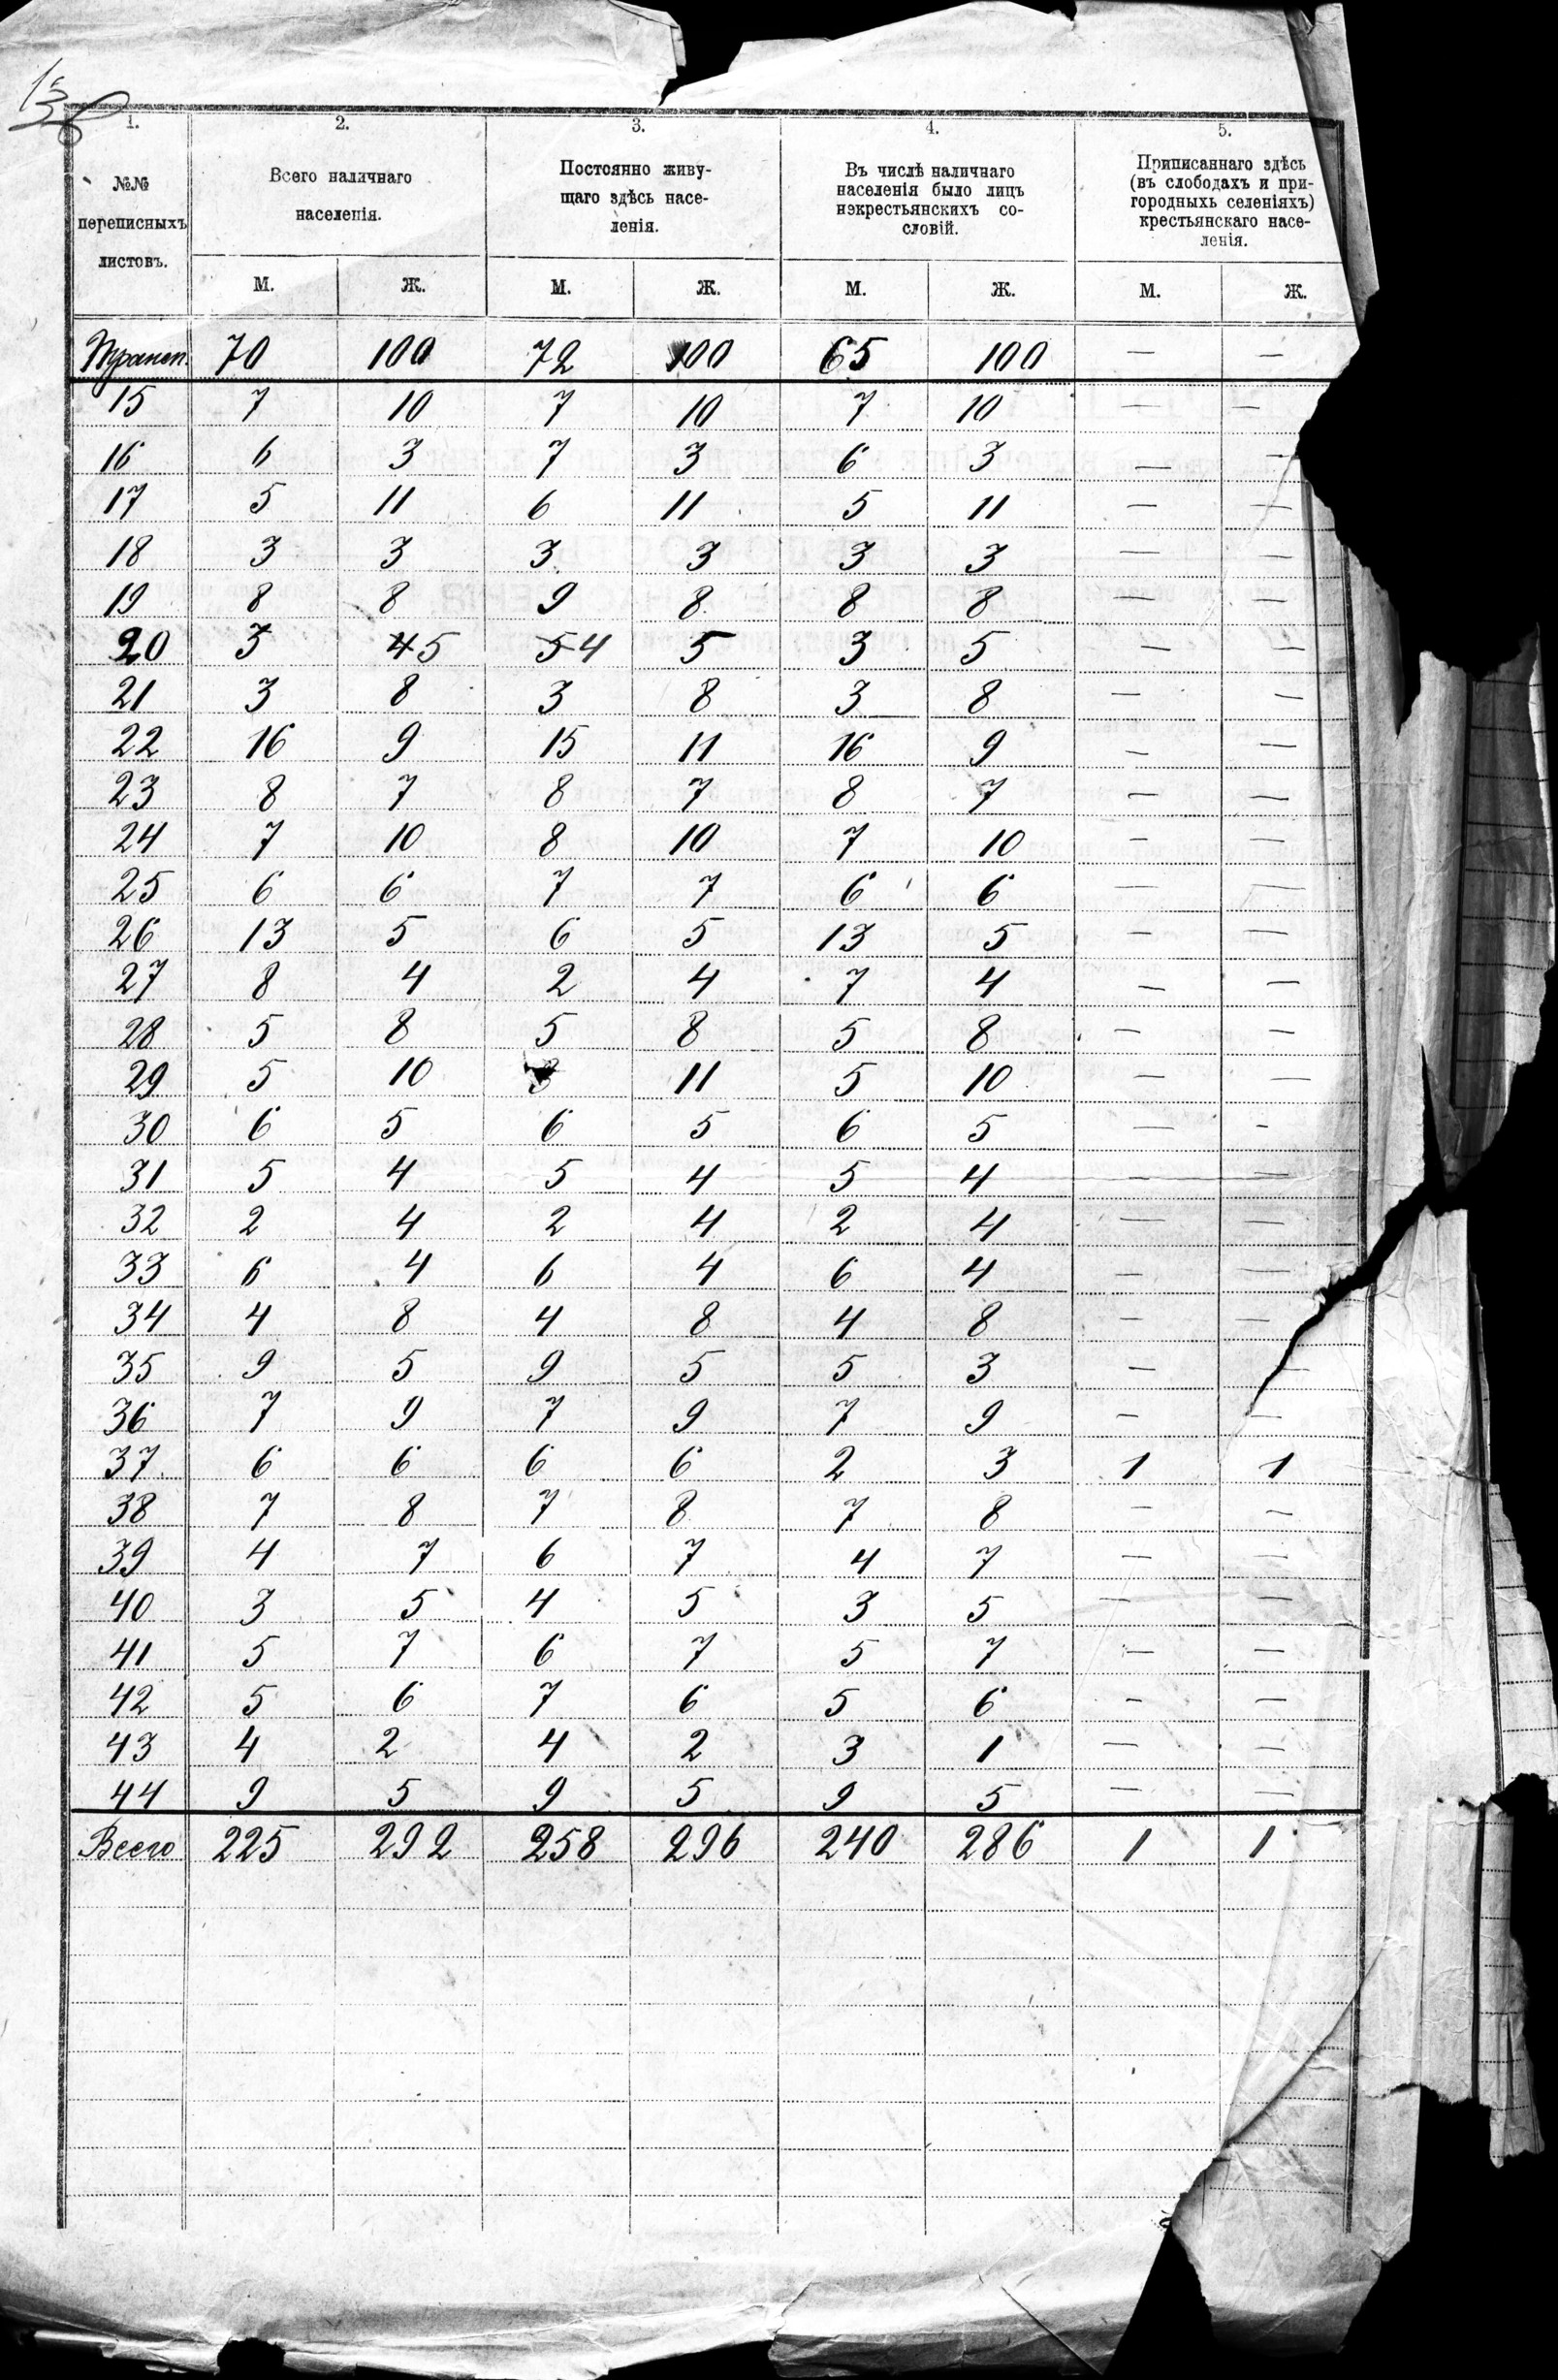 1. 2. 3. 4. 5.
№№ переписныхъ листовъ.
Всего наличнаго населенія.
Постоянно живущаго здѣсь населенія.
Въ числѣ наличнаго населенія было лицъ нэкрестьянскихъ сословій.
Приписаннаго здѣсь (въ слободахъ и пригородныхъ селеніяхъ) крестьянскаго населенія.
М. Ж. М. Ж. М. Ж. М. Ж.
Трансп. 70 100 72 100 65 100 — —
15 7 10 7 10 7 10 — —
16 6 3 7 3 6 3 — —
17 5 11 6 11 5 11 — —
18 3 3 3 3 3 3 — —
19 8 8 9 8 8 8 — —
20 3 45 54 5 3 5 — —
21 3 8 3 8 3 8 — —
22 16 9 15 11 16 9 — —
23 8 7 8 7 8 7 — —
24 7 10 8 10 7 10 — —
25 6 6 7 7 6 6 — —
26 13 5 6 5 13 5 — —
27 8 4 2 4 7 4 — —
28 5 8 5 8 5 8 — —
29 5 10 11 5 10 — —
30 6 5 6 5 6 5 — -
31 5 4 5 4 5 4 — —
32 2 4 2 4 2 4 — —
33 6 4 6 4 6 4 — —
34 4 8 4 8 4 8 — —
35 9 5 9 5 5 3 — —
36 7 9 7 9 7 9 — —
37 6 6 6 6 2 3 1 1
38 7 8 7 8 7 8 — —
39 4 7 6 7 4 7 — —
40 3 5 4 5 3 5 — —
41 5 7 6 7 5 7 — —
42 5 6 7 6 5 6 — —
43 4 2 4 2 3 1 — —
44 9 5 9 5 9 5 — —
Всего 225 292 258 296 240 286 1 1